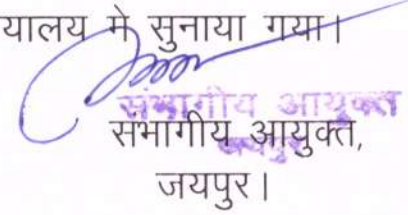 यालय मे सुनाया गया।
संभागीय आयुक्त
जयपुर
संभागीय आयुक्त,
जयपुर।